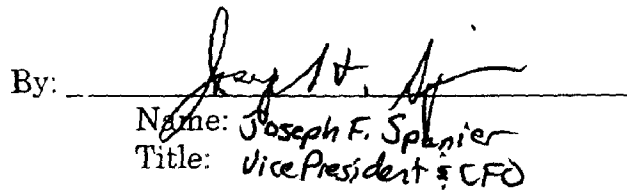 By:
Name: Joseph F. Spanier
Title: Vice President & CFO